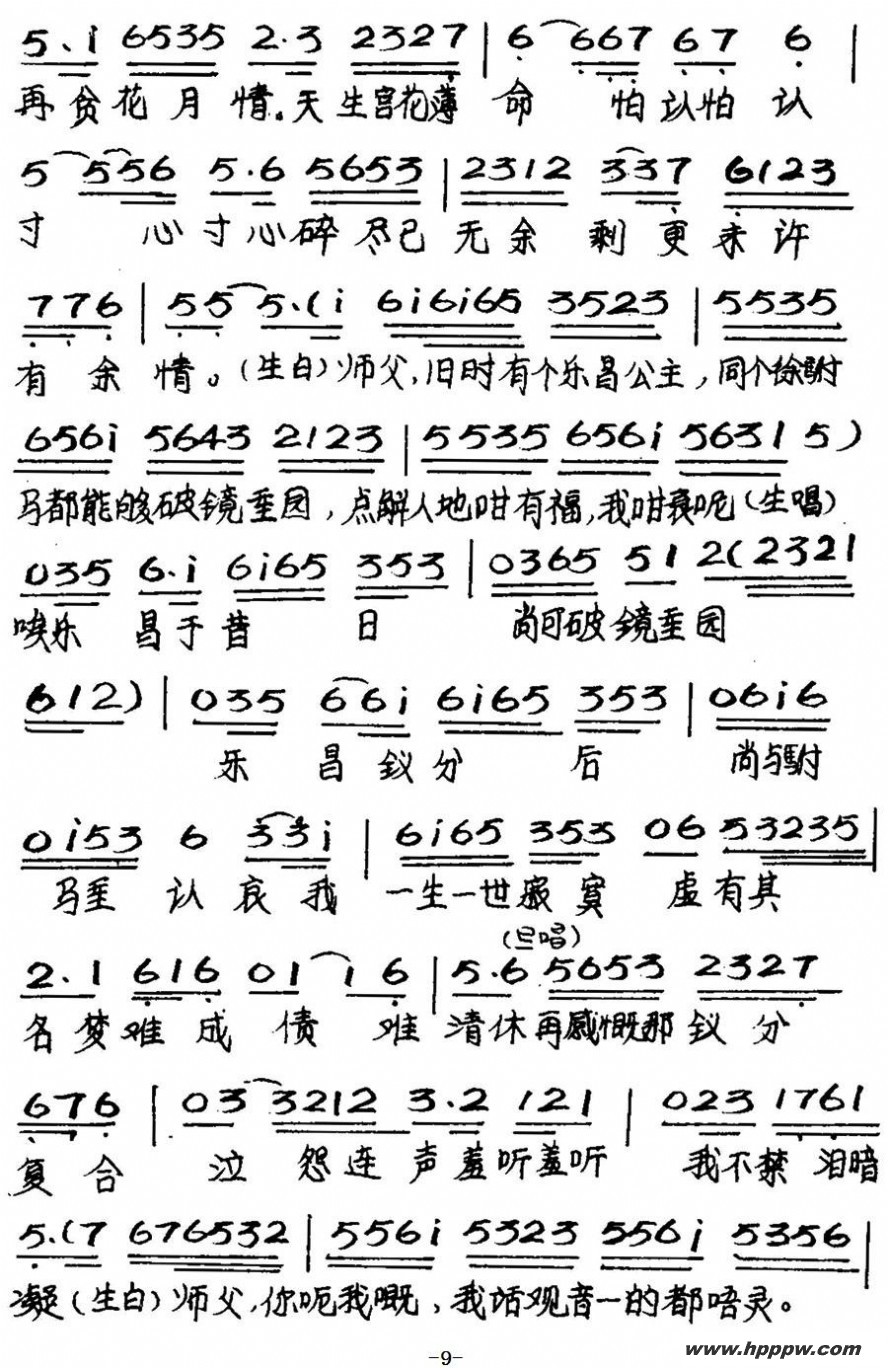 5.i 6535 2.3 2327 | 6 667 67 6 |
再贪花月情。天生宫花薄命 怕认怕认
5 556 5.6 5653 | 2312 337 6123
寸 心寸心碎尽已无余剩更未许
776 | 55 5.(i 6i6i65 3523 | 5535
有余情。(生白)师父,旧时有个乐昌公主,同个徐駙
656i 5643 2123 | 5535 656i 5631 5)
马都能够破镜重园,点解人地咁有福,我咁衰呢(生唱)
035 6.i 6i65 353 | 0365 51 2(2321
唉乐昌于昔日 尚可破镜重园
612) | 035 66i 6i65 353 | 06i6
乐昌钗分后 尚与駙
0i53 6 33i | 6i65 353 06 53235 |
马重认哀我 一生一世寂寞虚有其
(旦唱)
2.1 616 01 1 6 | 5.6 5653 2327
名梦难成债难清休再感慨那钗分
676 | 03 3212 3.2 121 | 023 1761
复合 泣怨连声羞听羞听 我不禁泪暗
5.(7 676532 | 556i 5323 556i 5356 |
凝(生白)师父,你呃我嘅,我话观音一的都唔灵。
www.hpppw.com
-9-